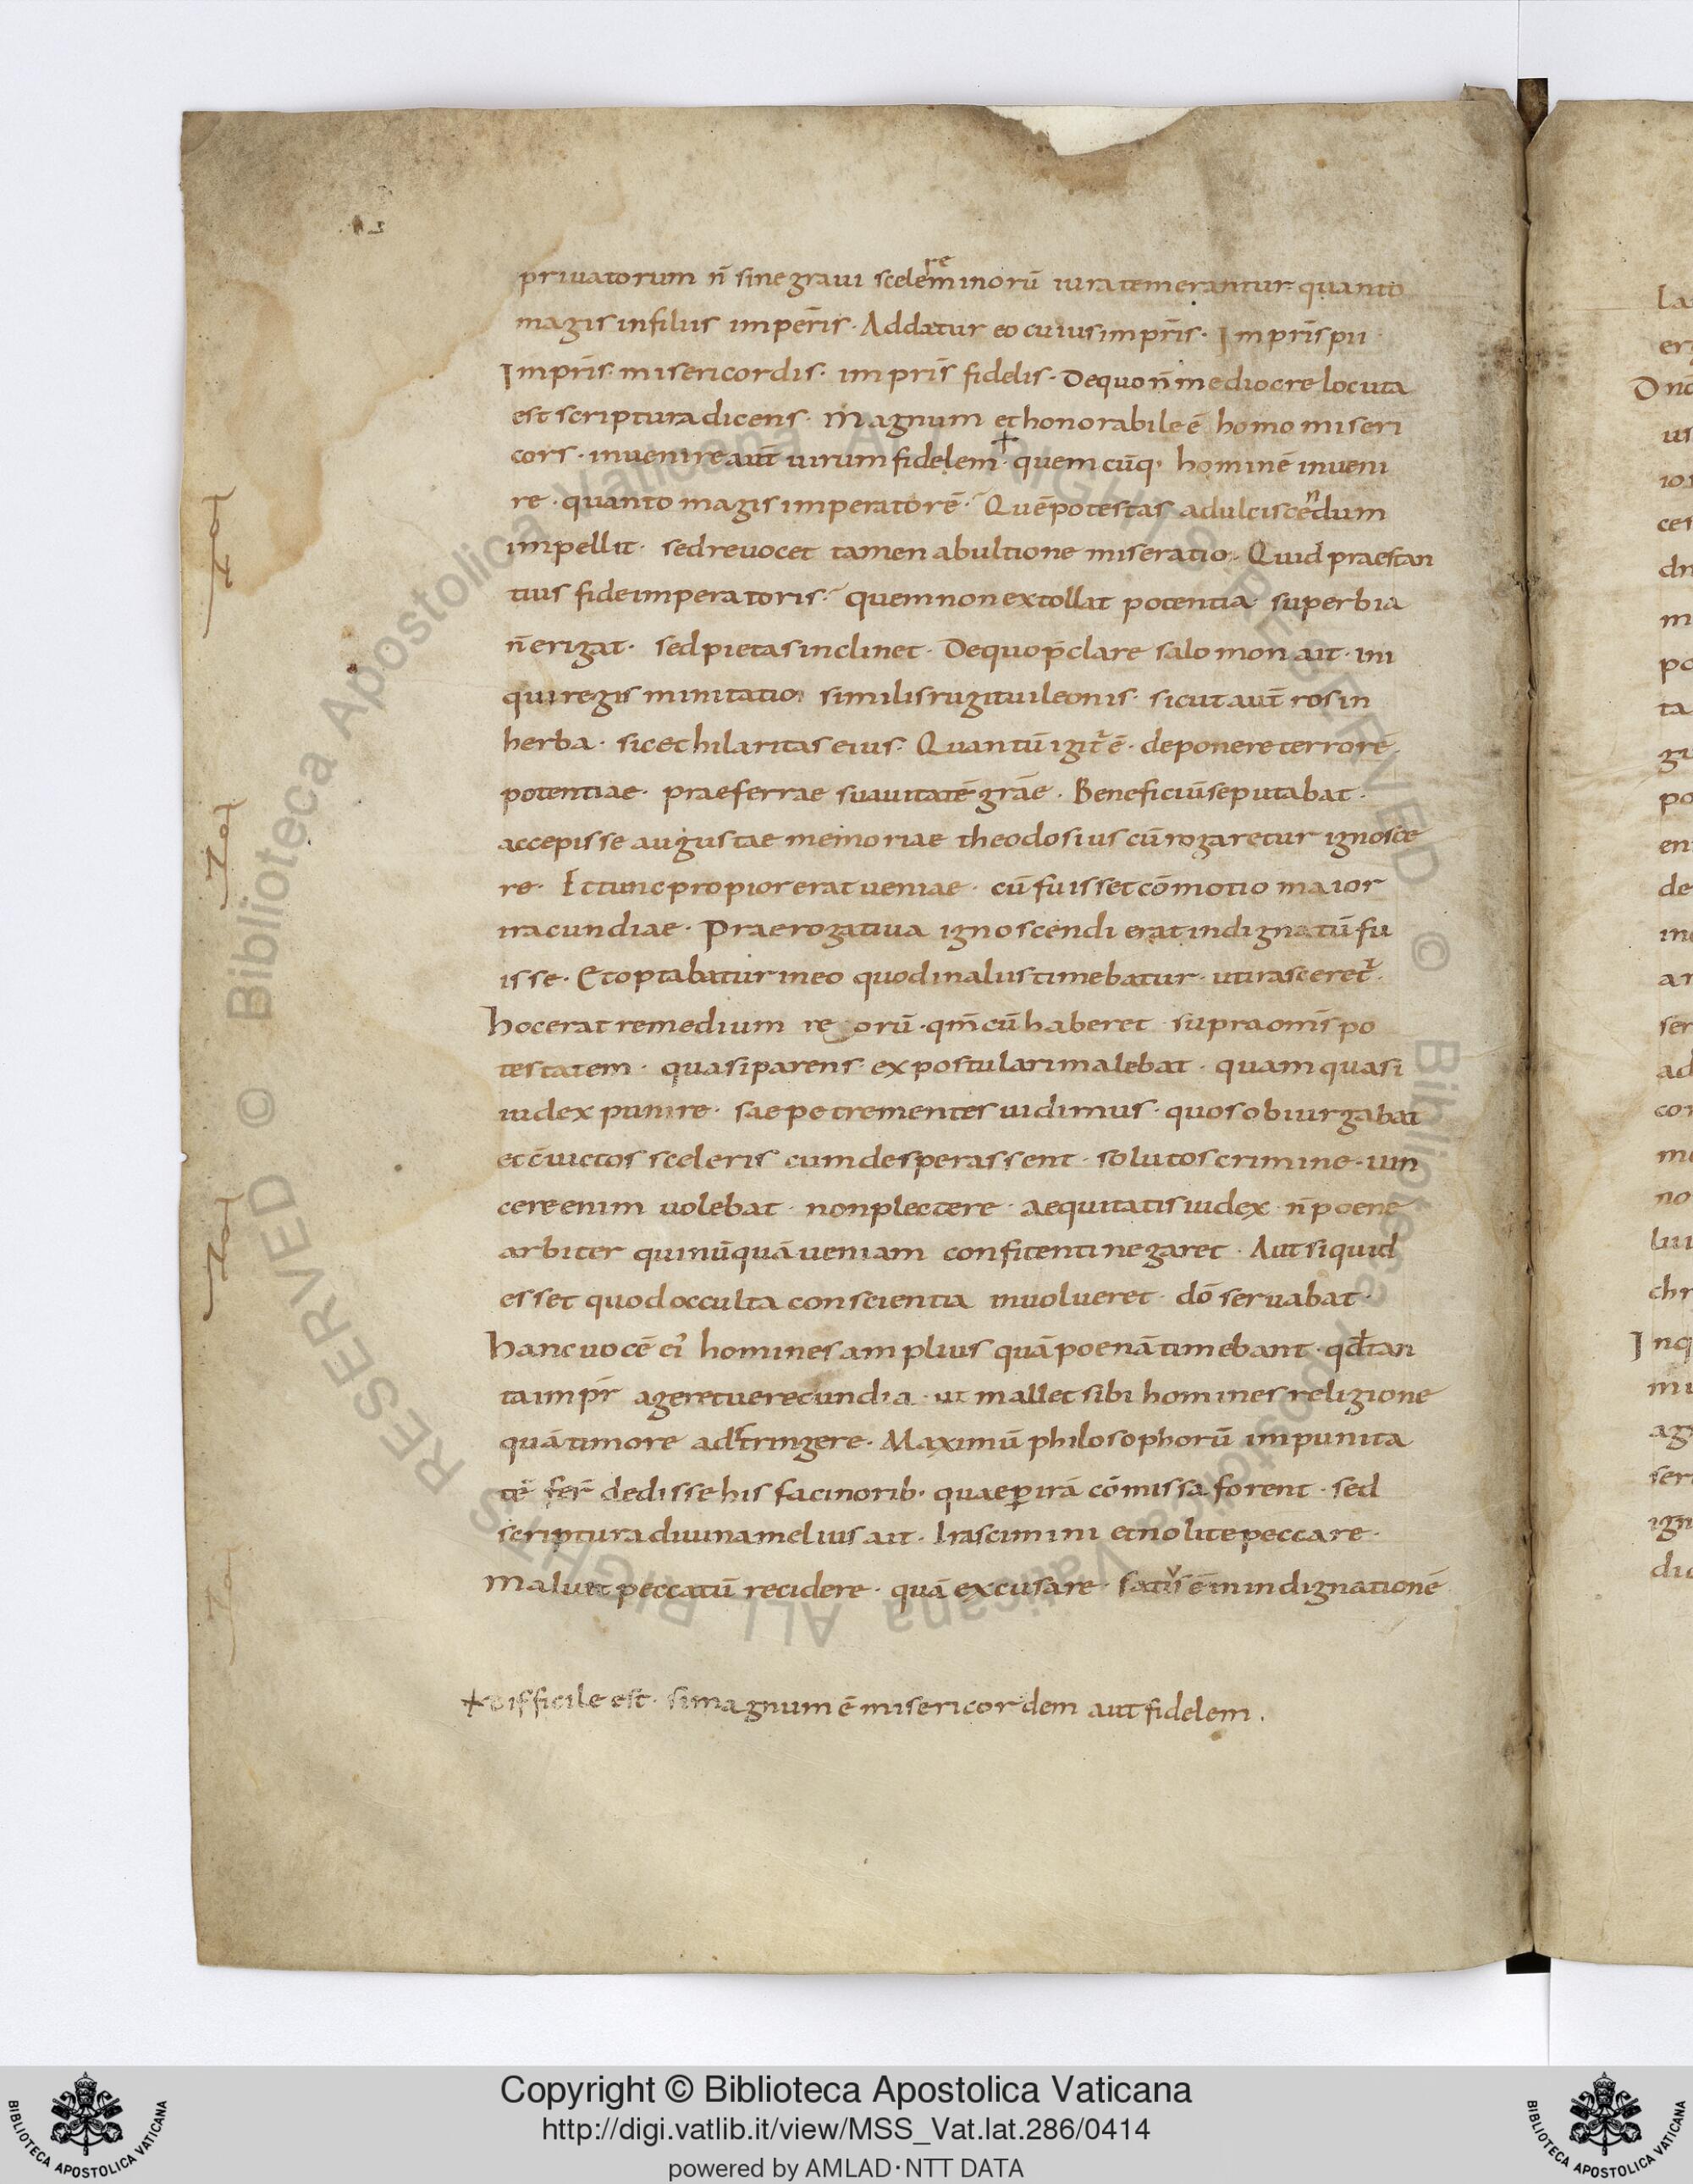 privatorum n̄ sine graui scelere minorū iura temerantur quanto
magis in filiis imperīs· Addatur eo cuius imprīs· Imprīs pii
Imprīs misericordis· imprīs fidelis· De quo n̄ mediocre locuta
est scriptura dicens· Magnum et honorabile ē homo miseri
cors· inuenire aut̄ uirum fidelem· + quemcūq; hominē inueni
re· quanto magis imperatorē· Quē potestas ad ulciscendum
impellit· sed reuocet tamen ab ultione miseratio· Quid praestan
tius fide imperatoris· quem non extollat potentia superbia
n̄ erigat· sed pietas inclinet· De quo p̄clare salomon ait· ini
qui regis minitatio similis rugitui leonis· sicut aut̄ ros in
herba· sic et hilaritas eius· Quantū igit̄ ē· deponere terrorē
potentiae· praeferrae suauitatē grāe· Beneficiū se putabat·
accepisse augustae memoriae theodosius cū rogaretur ignosce
re· Et tunc propior erat ueniae· cū fuisset cōmotio maior
iracundiae· Praerogatiua ignoscendi erat indignatū fu
isse· Et optabatur in eo quod in alus timebatur· ut irasceret̄·
hoc erat remedium re orū· qm̄ cū haberet supra omīs po
testatem· quasi parens expostulari malebat· quam quasi
iudex punire· saepe trementes uidimus· quos obiurgabat
et c̄uictos sceleris cum desperassent· solutos crimine· uin
cere enim uolebat· non plectere· aequitatis iudex· n̄ poene
arbiter qui nūquā ueniam confitenti negaret· Aut si quid
esset quod occulta conscientia inuolueret· dō seruabat·
hanc uocē ei' homines amplius quā poenā timebant· qd̄ tan
ta impr̄ ageret uerecundia· ut mallet sibi homines religione
quā timore adstringere· Maximū philosophorū impunita
tē fer̄ dedisse his facinorib· quae p̱ irā cōmissa forent· sed
scriptura diuina melius ait· Irascimini et nolite peccare·
Maluit peccatū recidere· quā excusare· satius ē in indignationē
+ Difficile est· si magnum ē misericordem aut fidelem·
Copyright © Biblioteca Apostolica Vaticana
http://digi.vatlib.it/view/MSS_Vat.lat.286/0414
powered by AMLAD·NTT DATA